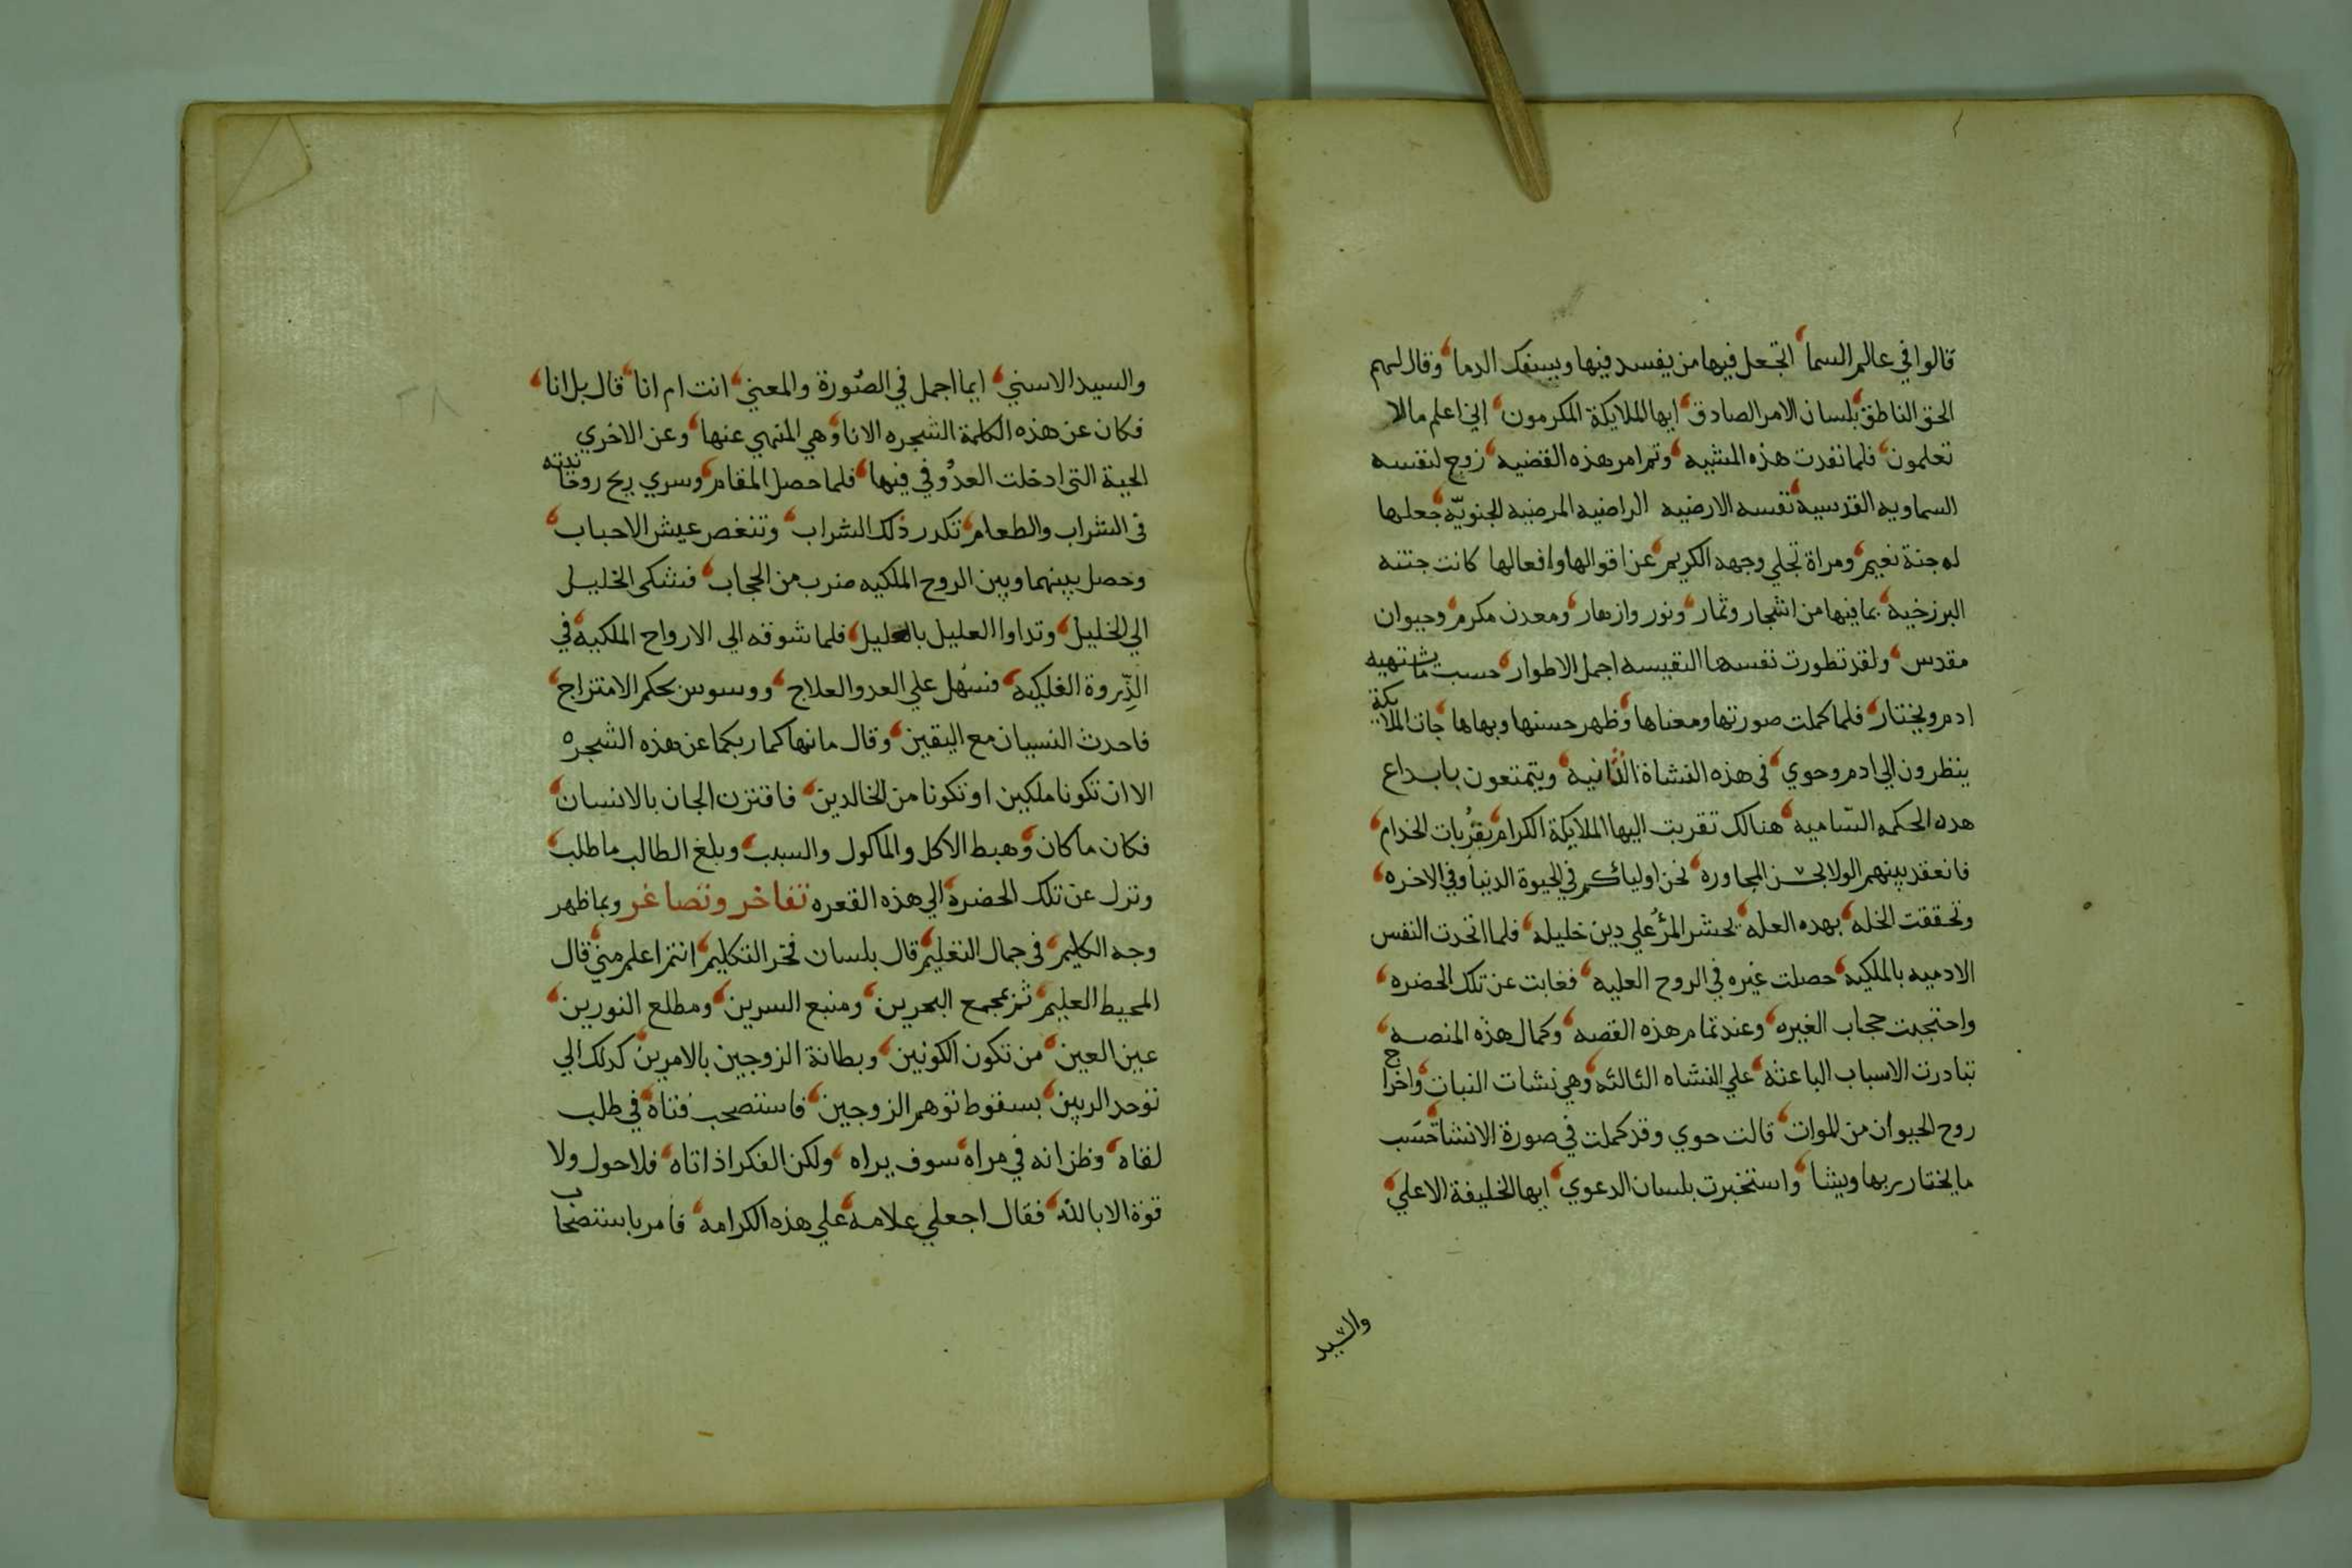 قالوا في عالم السما، اتجعل فيها من يفسد فيها ويسفك الدما، وقال لهم
الحق الناطق، بلسان الامر الصادق، ايها الملايكة المكرمون، اني اعلم مالا
تعلمون، فلما نفدت هذه المشيه، وتم امر هذه القضيه، زوج لنفسه
السماويه القدسية، نفسه الارضيه الراضيه المرضيه الجنويّة، جعلها
له جنة نعيم، ومراة تجلي وجهه الكريم، عن اقوالها وافعالها كانت جنته
البرزخية، بما فيها من اشجار وثمار، ونور وازهار، ومعدن مكرم، وحيوان
مقدس، ولقد تطورت نفسها النفيسه اجمل الاطوار، حسب ما يشتهيه
ادم ويختار، فلما كملت صورتها ومعناها، وظهر حسنها وبهاها، جات الملايكة
ينظرون الي ادم وحوي، في هذه النشاة الثانية، ويتمتعون بابداع
هذه الحكمه السّاميه، هنالك تقربت اليها الملايكة الكرام، بقُربات الخدام،
فانعقد بينهم الولا بحسن المجاوره، نحن اولياءكم في الحيوة الدنيا وفي الاخره،
وتحققت الخله، بهده العله، يحشر المرُ علي دين خليله، فلما اتحدت النفس
الادميه بالملكية، حصلت غيره في الروح العليه، فغابت عن تلك الحضره،
واحتجبت حجاب الغيره، وعند تمام هذه القصه، وكمال هذه المنصه،
تبادرت الاسباب الباعثة، علي النشاه الثالثه، وهي نشات النبات، واخراج
روح الحيوان من الموات، قالت حوي وقد كملت في صورة الانشا، حَسَب
ما يختار ربها ويشا، واستخبرت بلسان الدعوي، ايها الخليفة الاعلي،
والسيد
والسيد الاسني، ايما اجمل في الصُورة والمعني، انت ام انا، قال بل انا،
فكان عن هذه الكلمة الشجره الانا، وهي المنهي عنها، وعن الاخري
الحية التي ادخلت العدُو في فيها، فلما حصل المقام، وسري ريح روحانيته
في الشراب والطعام، تكدر ذلك الشراب، وتنغص عيش الاحباب،
وحصل بينهما وبين الروح الملكيه ضرب من الحجاب، فشكي الخليل
الي الخليل، وتداوا العليل بالعليل، فلما شوقه الي الارواح الملكية، في
الذِّروة الفلكية، فسُهل علي العدو العلاج، ووسوس بحكم الامتزاج،
فاحدث النسيان مع اليقين، وقال ما نهاكما ربكما عن هذه الشجره
الا ان تكونا ملكين او تكونا من الخالدين، فاقترن الجان بالانسان،
فكان ما كان، وهبط الاكل والماكول والسبب، وبلغ الطالب ما طلب،
ونزل عن تلك الحضرة، الي هذه القعره تفاخر وتصاغر وبما ظهر
وجه الكليم، في جمال التعليم، قال بلسان فخر التكليم، انتم اعلم مني، قال
المحيط العليم، ثم بمجمع البحرين، ومنبع السرين، ومطلع النورين،
عين العين، من تكون الكونين، وبطانة الزوجين بالامرين، كدلك الي
توحد الربين، بسقوط توهم الزوجين، فاستصحب فتاه، في طلب
لقاه، وظن انه في مراه، سوف يراه، ولكن الفكر اذا تاه، فلا حول ولا
قوة الا بالله، فقال اجعلي علامة، علي هذه الكرامه، فامر باستصحاب